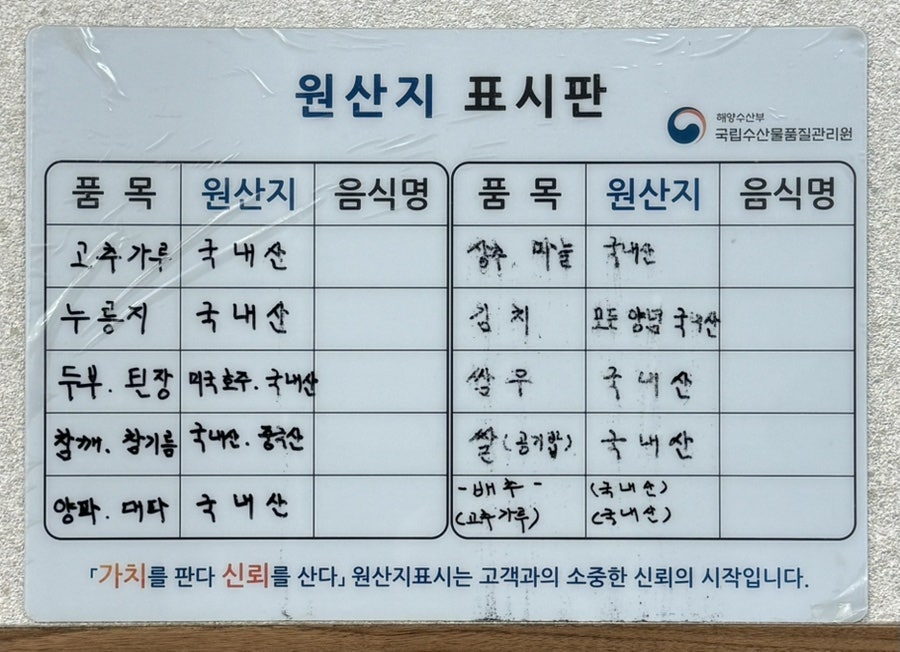 원산지 표시판
해양수산부
국립수산물품질관리원
품 목 원산지 음식명 품 목 원산지 음식명
고추가루 국내산 상추. 마늘 국내산
누룽지 국내산 김치 모든 양념 국내산
두부. 된장 미국호주. 국내산 쌈무 국내산
참깨. 참기름 국내산. 중국산 쌀(공기밥) 국내산
양파. 대파 국내산 -배추- (국내산)
(고추가루) (국내산)
「가치를 판다 신뢰를 산다」 원산지표시는 고객과의 소중한 신뢰의 시작입니다.